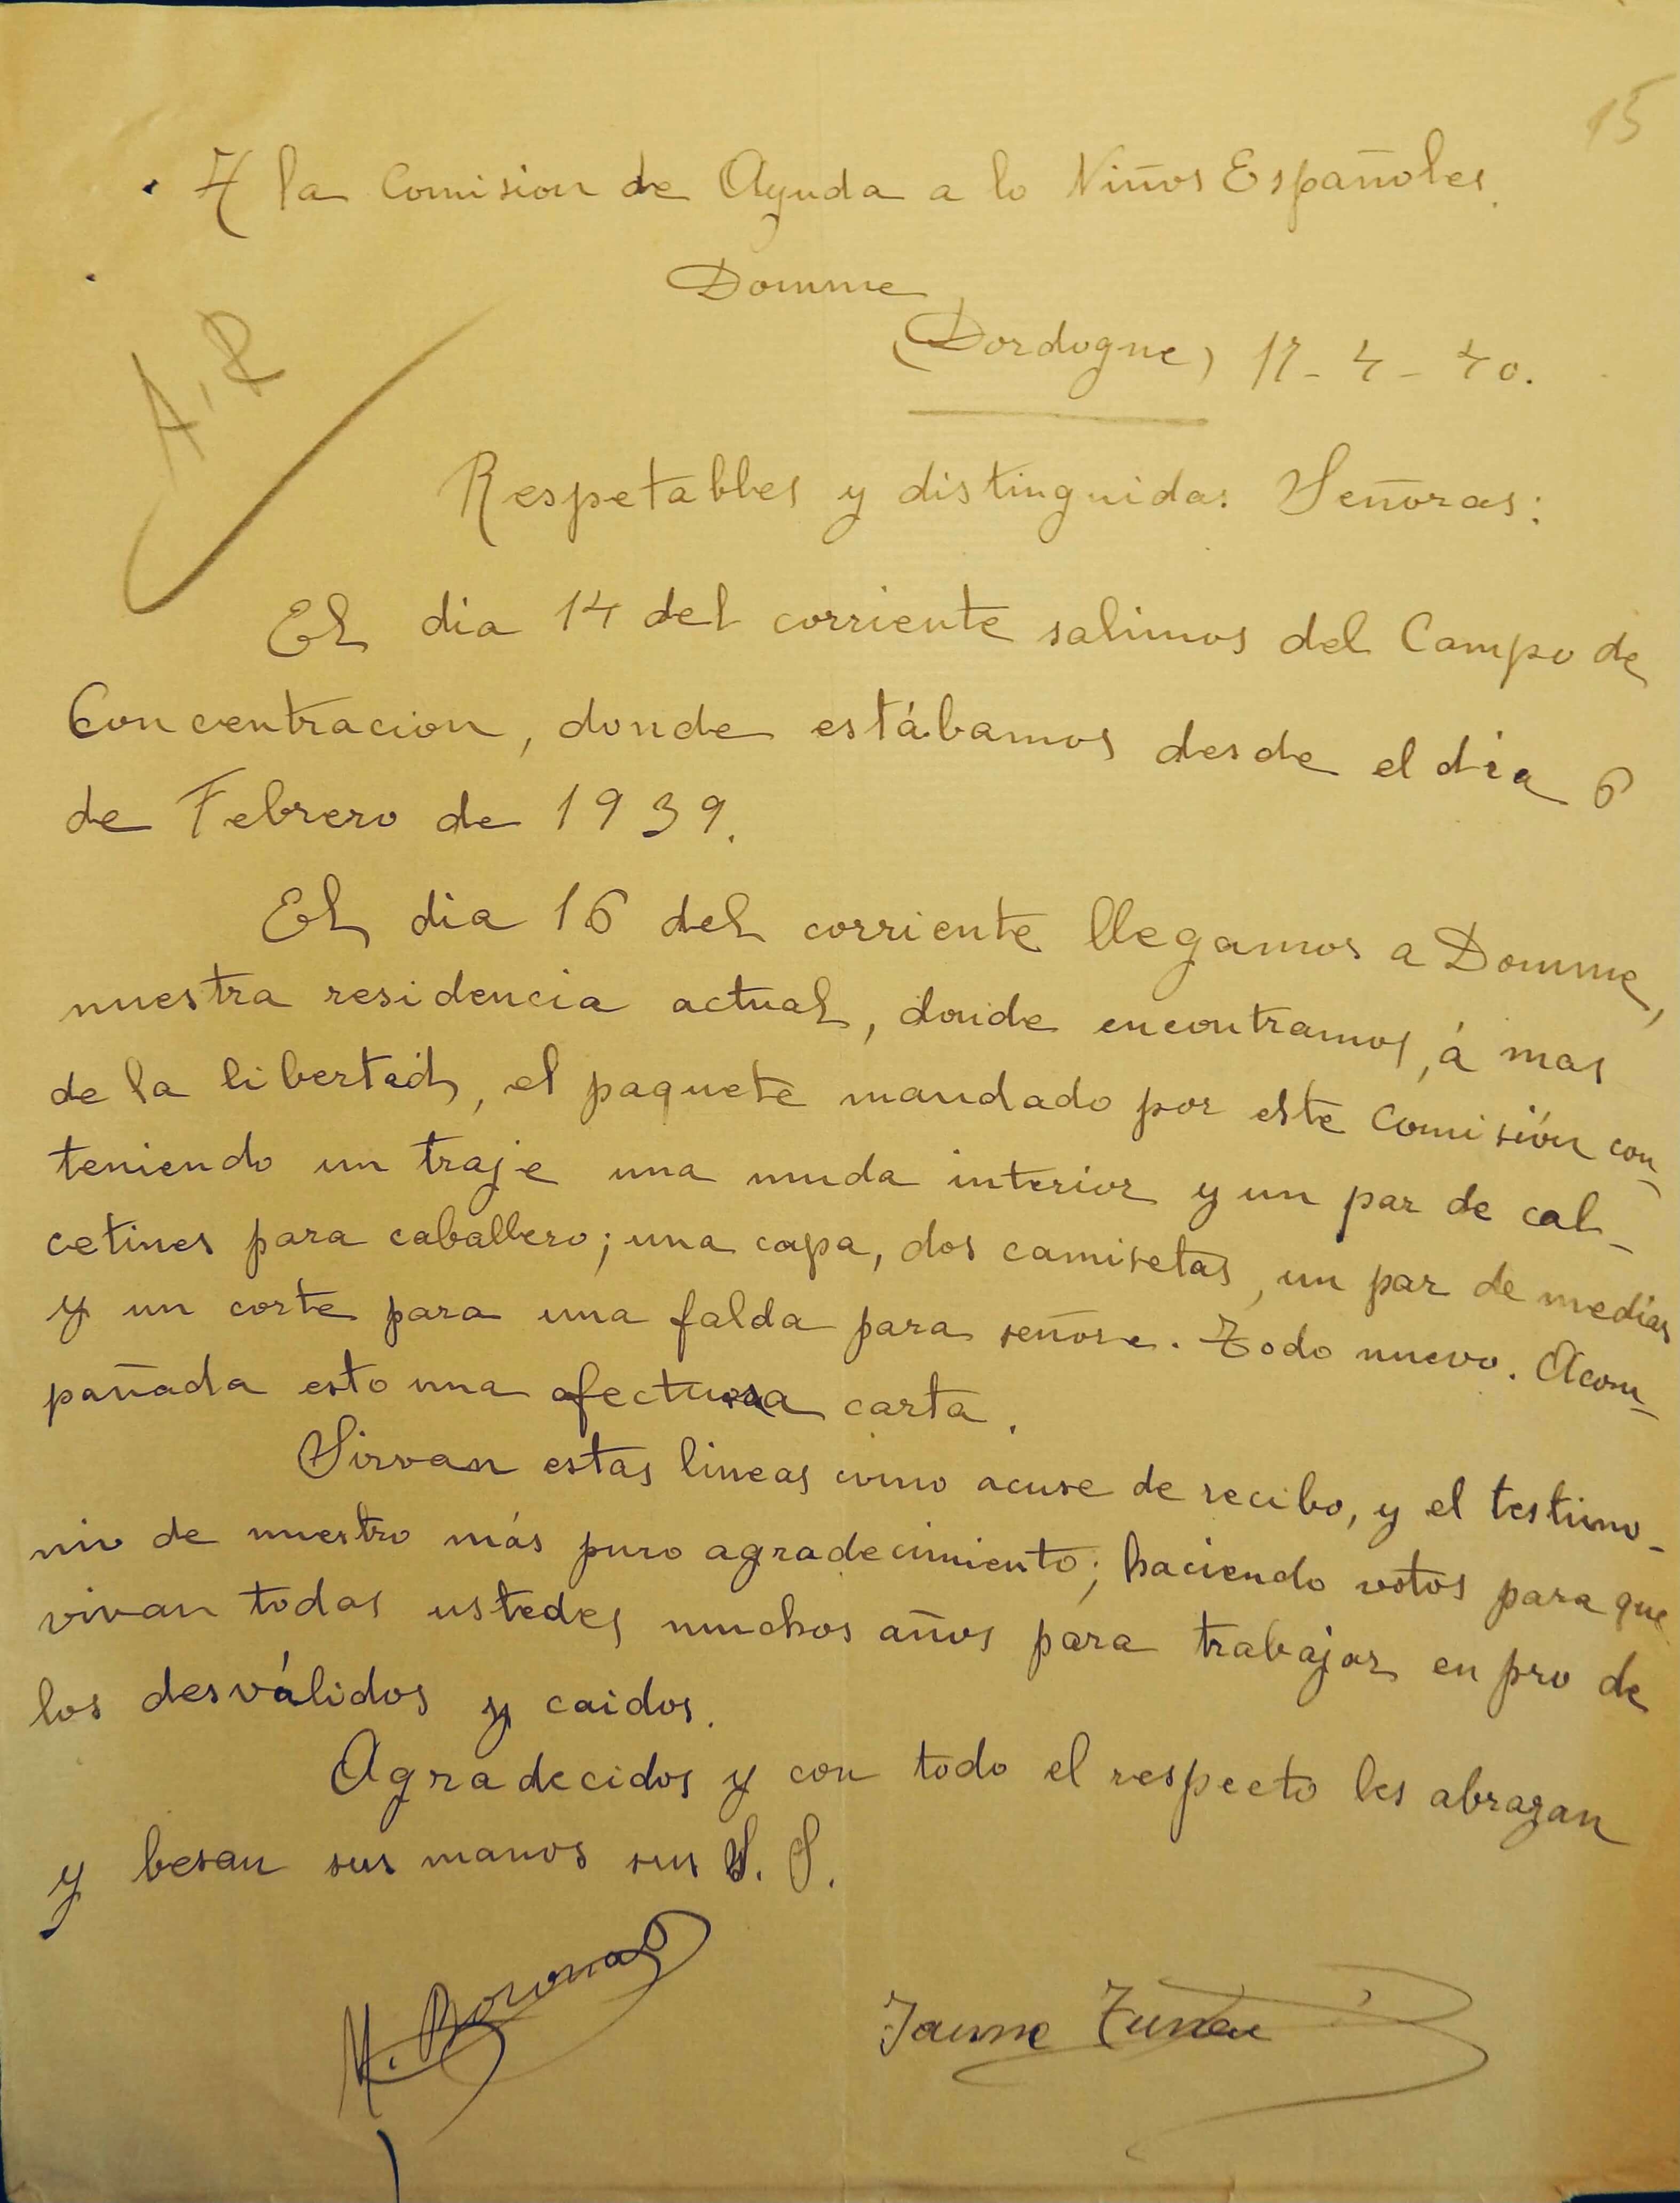 15
A la Comision de Ayuda a lo Niños Españoles.
Domme
(Dordogne) 17-4-40.
A.R
Respetables y distinguidas Señoras:
El dia 14 del corriente salimos del Campo de
Concentracion, donde estábamos desde el dia 6
de Febrero de 1939.
El dia 16 del corriente llegamos a Domme,
nuestra residencia actual, donde encontramos, á mas
de la libertad, el paquete mandado por este Comisión con-
teniendo un traje una muda interior y un par de cal-
cetines para caballero; una capa, dos camisetas, un par de medias
y un corte para una falda para señora. Todo nuevo. Acom-
pañada esto una afectuosa carta.
Sirvan estas lineas como acuse de recibo, y el testimo-
nio de nuestro más puro agradecimiento; haciendo votos para que
vivan todas ustedes muchos años para trabajar en pro de
los desválidos y caidos.
Agradecidos y con todo el respecto les abrazan
y besan sus manos sus S. S.
M. Boronad
Jaume